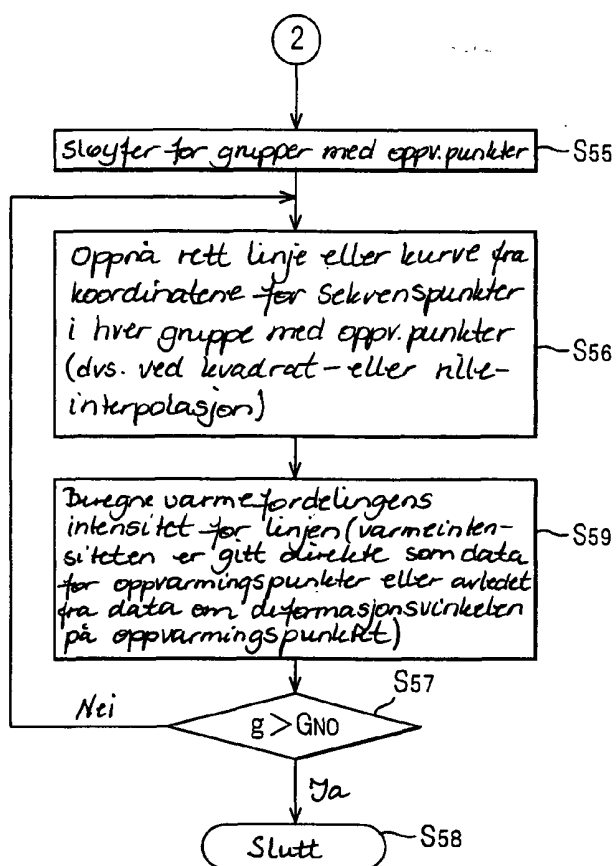 2
Sløyfer for grupper med oppv.punkter
S55
Oppnå rett linje eller kurve fra
koordinatene for sekvenspunkter
i hver gruppe med oppv.punkter
(dvs. ved kvadrat- eller rille-
interpolasjon)
S56
Beregne varmefordelingens
intensitet for linjen (varmeinten-
siteten er gitt direkte som data
for oppvarmingspunkter eller avledet
fra data om deformasjonsvinkelen
på oppvarmingspunktet)
S59
S57
Nei
g > GNO
Ja
Slutt
S58